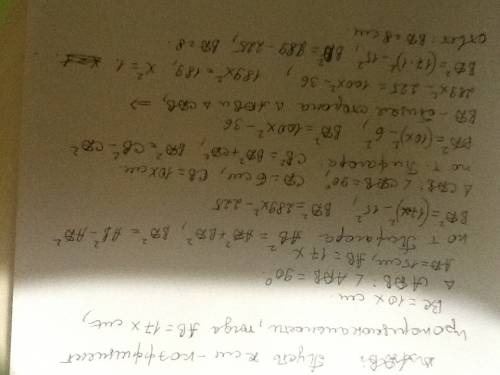 Δ ADB: Пусть x см - коэффициент
пропорциональности, тогда AB = 17x см,
BC = 10x см.
Δ ADB: ∠ADB = 90°.
AD = 15 см, AB = 17x
по т. Пифагора AB² = AD² + BD², BD² = AB² - AD²
BD² = (17x)² - 15², BD² = 289x² - 225
Δ CDB: ∠CDB = 90°, CD = 6 см, CB = 10x см.
по т. Пифагора: CB² = BD² + CD², BD² = CB² - CD²
BD² = (10x)² - 6², BD² = 100x² - 36
BD - общая сторона Δ ADB и Δ CDB, ⇒
289x² - 225 = 100x² - 36, 189x² = 189, x² = 1
BD² = (17·1)² - 15², BD² = 289 - 225, BD = 8
Ответ: BD = 8 см